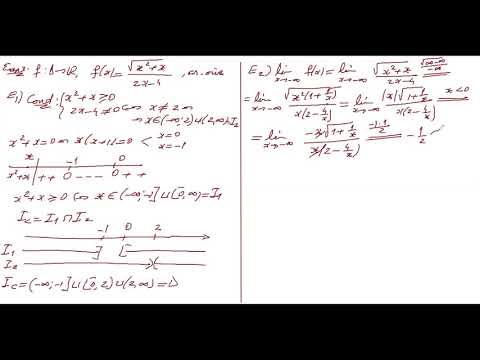 f: D→ℝ, f(x) = √(x²+x) / (2x-4)
E₁) Cond: { x²+x ≥ 0
2x-4 ≠ 0 ⇔ x ≠ 2 ⇔
⇔ x ∈ (-∞; 2) ∪ (2, ∞) = I₂
x²+x = 0 ⇔ x(x+1) = 0 < x=0
x=-1
x -1 0
x²+x + + 0 - - - - 0 + +
x²+x ≥ 0 ⇔ x ∈ (-∞; -1] ∪ [0, ∞) = I₁
I_c = I₁ ∩ I₂
-1 0 2
I₁
I₂
I_c = (-∞; -1] ∪ [0, 2) ∪ (2, ∞) = D
E₂) lim x→-∞ f(x) = lim x→-∞ √(x²+x) / (2x-4) = √(∞-∞) / -∞
= lim x→-∞ √(x²(1+1/x)) / x(2-4/x) = lim x→-∞ |x|√(1+1/x) / x(2-4/x) x<0 =
= lim x→-∞ -x√(1+1/x) / x(2-4/x) = -1·1 / 2 = -1/2